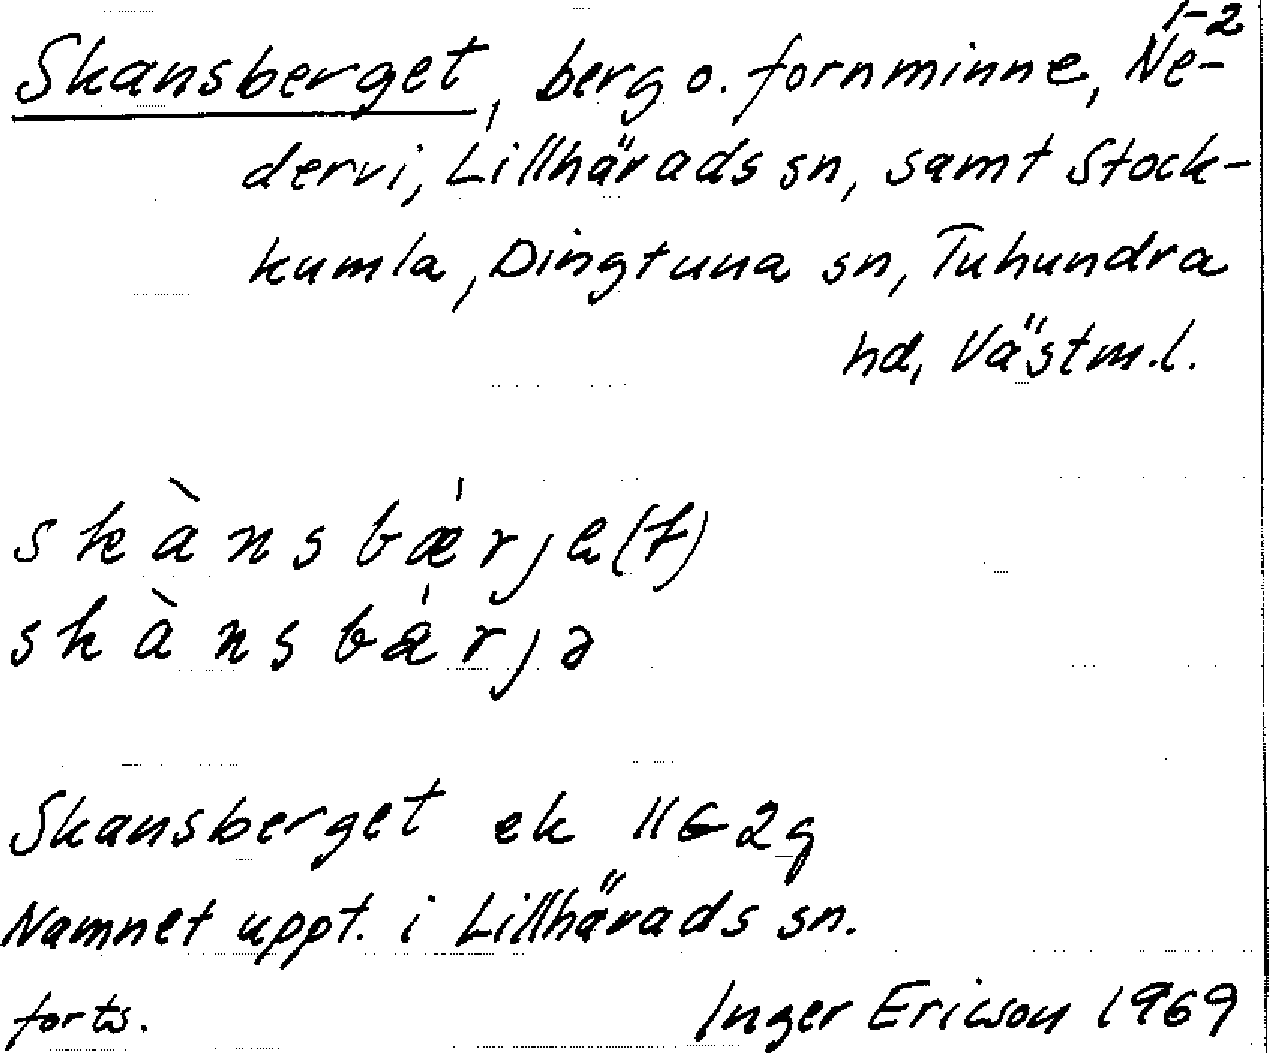 1-2
Skansberget, berg o. fornminne, Ne-
dervi, Lillhärads sn, samt Stock-
kumla, Dingtuna sn, Tuhundra
hd, Västm.l.
skànsbǽrje(t)
skànsbǽrjə
Skansberget ek 11G2g
Namnet uppt. i Lillhärads sn.
forts. Inger Ericson 1969